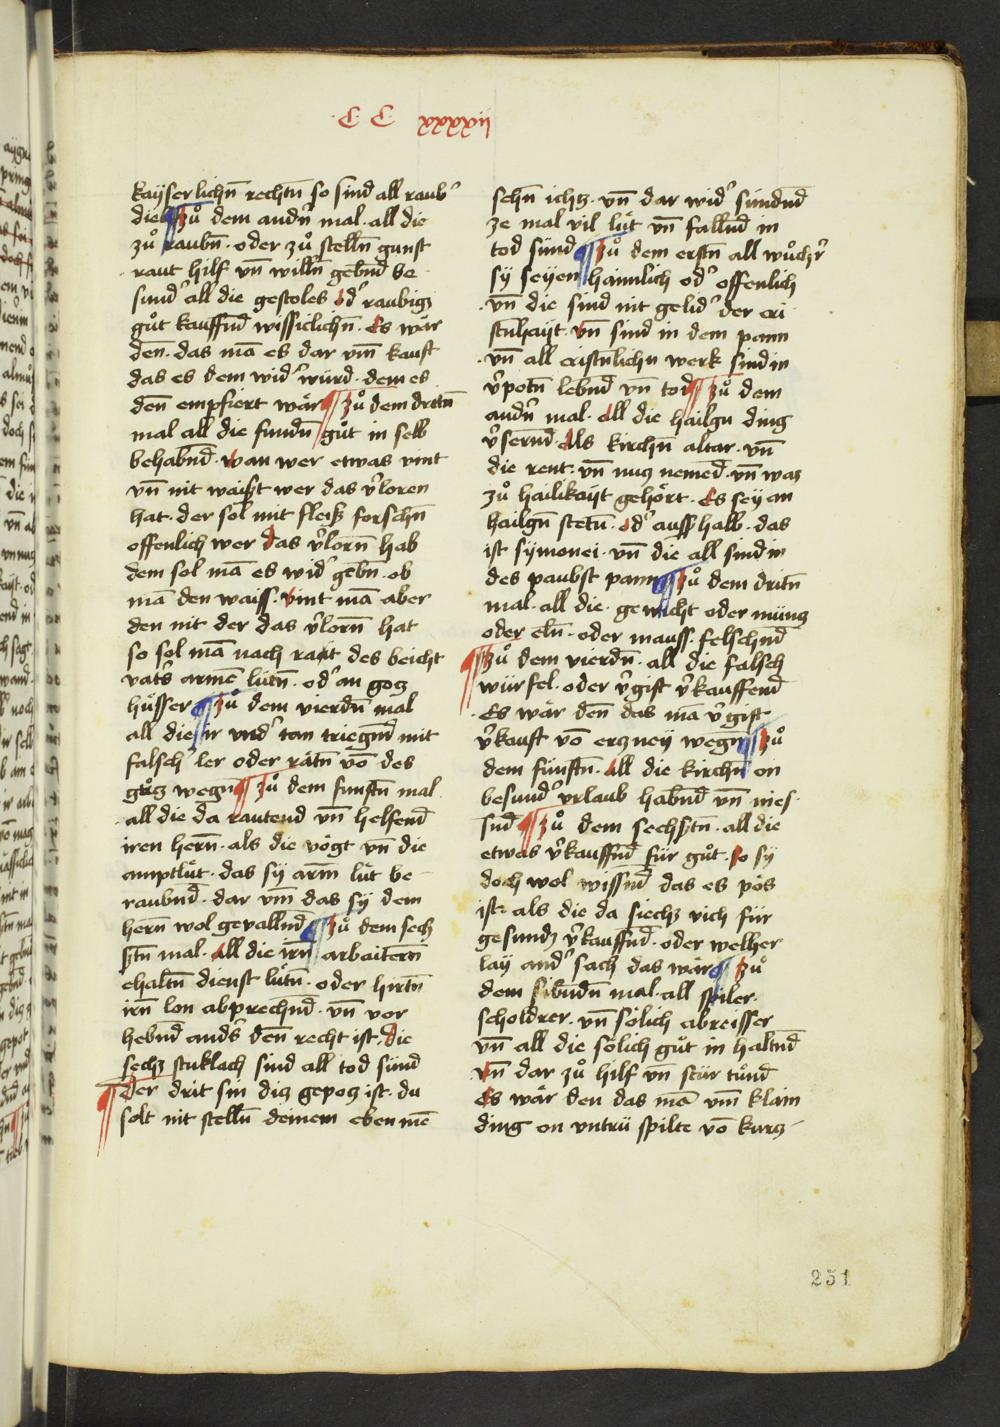 C C xxxxij
kayserlichn̄ rechtn̄ so sind all raub'
die ¶ Zů dem andn̄ mal · all die
zů raubn̄ · oder zů stelln̄ gunst
raut hilf vn̄ willn̄ gebnd be
sund' all die gestoles od' raubigz
gůt kauffnd wissiclichn̄ · Es wär
den̄ · das mā es dar vm̄ kauft
das es dem wid' würd · dem es
den̄ empfiert wär ¶ Zů dem dritn̄
mal all die fundn̄ gůt in selb
behabnd · wan wer etwas vint
vn̄ nit waißt wer das v'loren
hat · der sol mit fleiß forschn̄
offenlich wer das v'lorn̄ hab
dem sol mā es wid' gebn̄ · ob
mā den waiss · vint mā aber
den nit der das v'lorn̄ hat
so sol mā nach raut des beicht
vat's armē lütn̄ · od' an gotz
hüsser ¶ Zů dem vierdn̄ mal
all die ir vnd' tan triegnd mit
falsch' ler oder rätn̄ vō des
gůtz wegn̄ ¶ Zů dem funftn̄ mal
all die da rautend vn̄ helfend
iren hern̄ · als die vögt vn̄ die
amptlüt · das sy arm̄ lüt be
raubnd · dar vm̄ das sy dem
hern̄ wol gevallnd ¶ Zů dem sech
stn̄ mal · All die irn̄ arbaitern̄
ehaltn̄ dienst lütn̄ · oder hirtn̄
irn̄ lon abprechnd · vn̄ vor
hebnd anders den̄ recht ist · die
sechz stuklach sind all tod sünd
¶ Der drit sin diz gepotz ist · du
solt nit stelln̄ deinem eben mē
sehn̄ ichtz · vn̄ dar wid' sündnd
ze mal vil lüt vn̄ fallnd in
tod sünd ¶ Zů dem erstn̄ all wůchr'
sy seyen haimlich od' offenlich
vn̄ die sind nit gelid' der cri
stnhayt · vn̄ sind in dem pann
vn̄ all cristnlichn werk sind in
v'potn̄ lebnd vn tod ¶ Zů dem
andn̄ mal · All die hailgn ding
v'sernd · Als kirchn̄ altar · vn̄
die rent · vn̄ nutz nemed · vn̄ waz
zů hailikayt gehört · Es sey an
hailgn̄ stetn̄ · od' auss'halb · das
ist symonei · vn̄ die all sind in
des paubst pann ¶ Zů dem dritn̄
mal · all die gewicht oder müntz
oder eln̄ · oder mauss · felschnd
¶ Zů dem vierdn̄ · all die falsch
würfel · oder v'gift v'kauffend
Es wär den̄ das mā v'gift
v'kauft vō ertzney wegn̄ ¶ Zů
dem fünftn̄ · All die kirchn̄ on
besund' vrlaub habnd vn̄ nies
snd ¶ Zů dem sechstn̄ · all die
etwas v'kauffnd für gůt · so sy
doch wol wissnd das es pös
ist · als die da siechz vich für
gesundz v'kauffnd · oder welher
lay and' sach das wär ¶ Zů
dem sibndn̄ mal · all spiler ·
scholdrer · vn̄ sölich abreisser
vn̄ all die sölich gůt in haltnd
vn̄ dar zů hilf vn̄ stür tůnd
Es wär den das mā vm̄ klain
ding on vntrü spilte vō kurtz
251